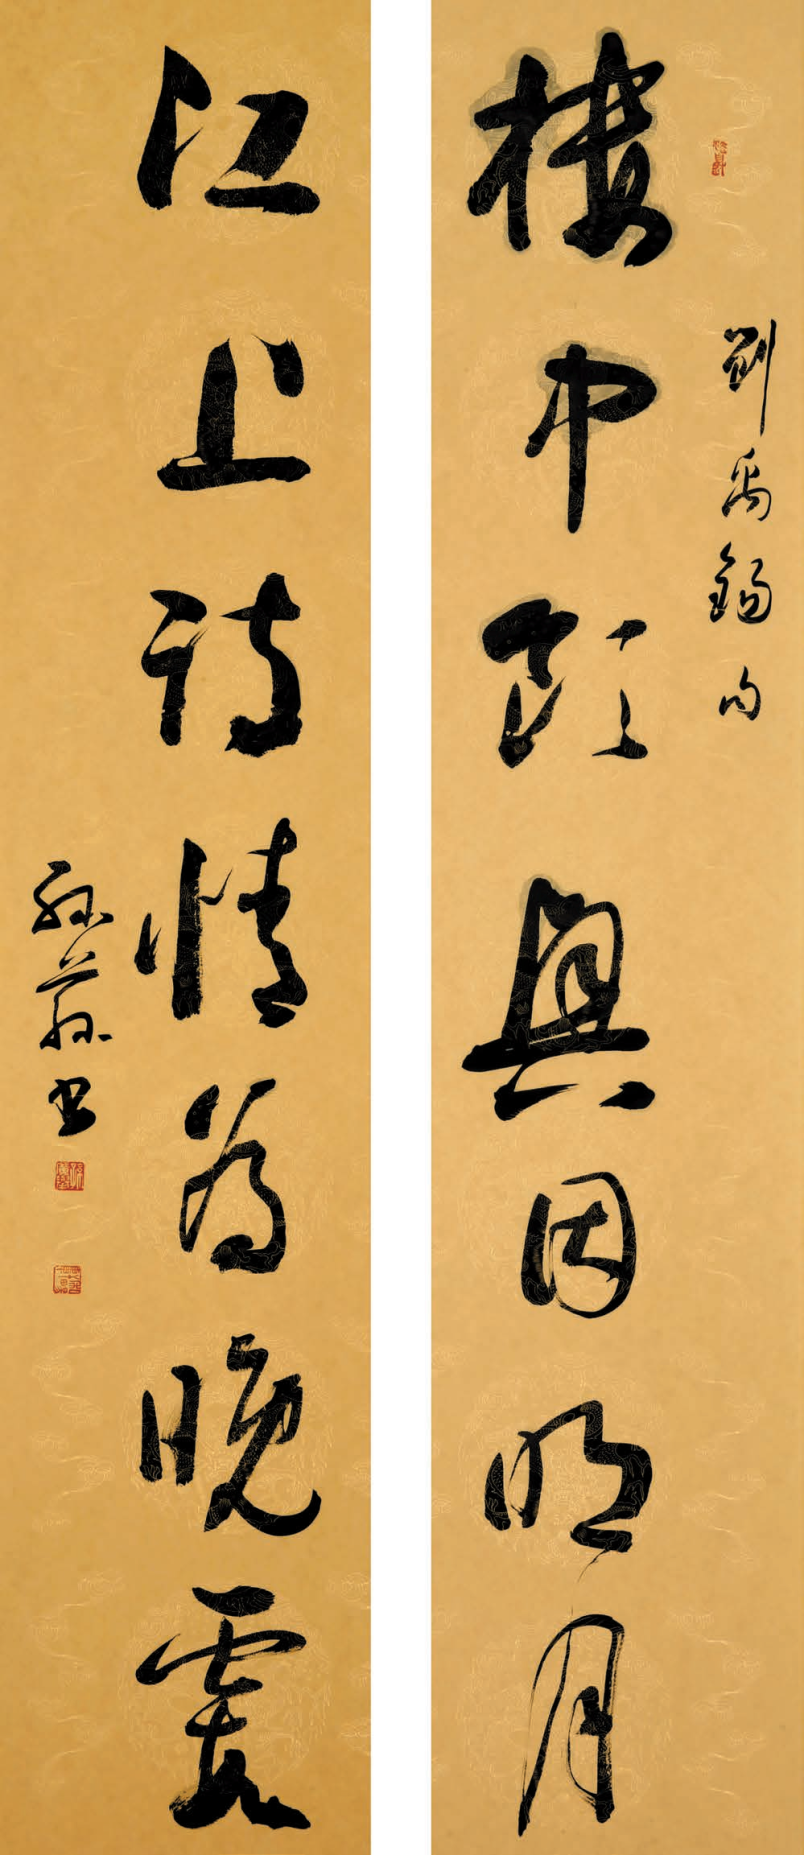 劉禹錫句
樓中飲興因明月
江上詩情為晚霞
孫蓀書